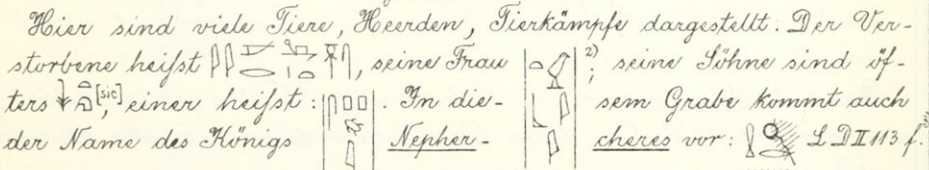 Hier sind viele Tiere, Heerden, Tierkämpfe dargestellt. Der Ver-
storbene heißt , seine Frau 2); seine Söhne sind öf-
ters [sic], einer heißt: . In die- sem Grabe kommt auch
der Name des Königs Nepher- cheres vor: L D II 113 f.